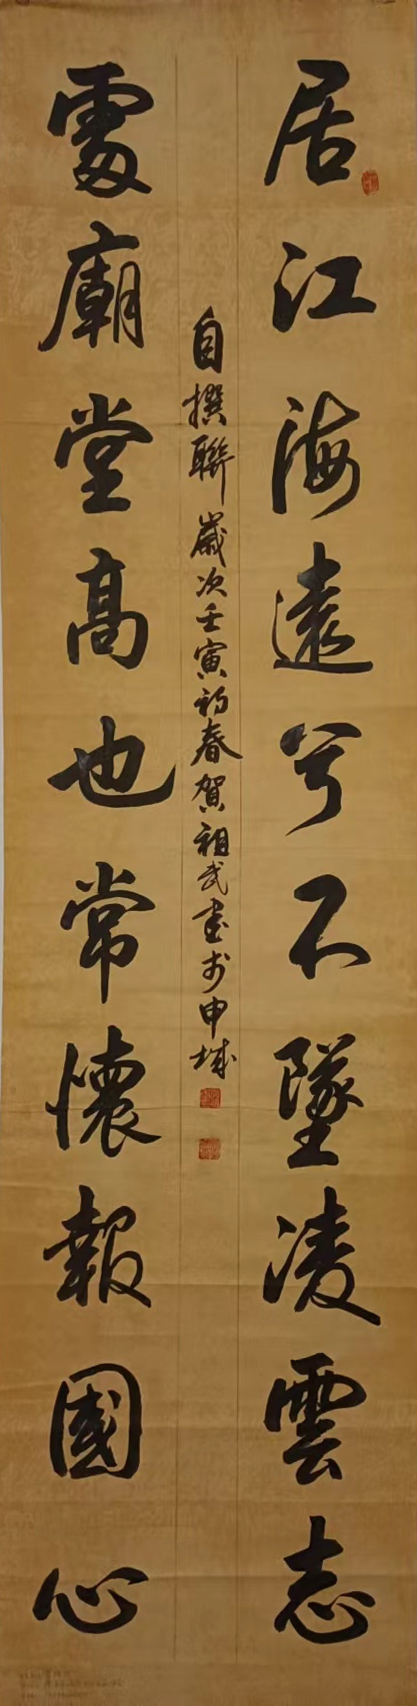 居江海遠兮不墜凌雲志
自撰聯歲次壬寅初春賀祖武書於申城
處廟堂高也常懷報國心